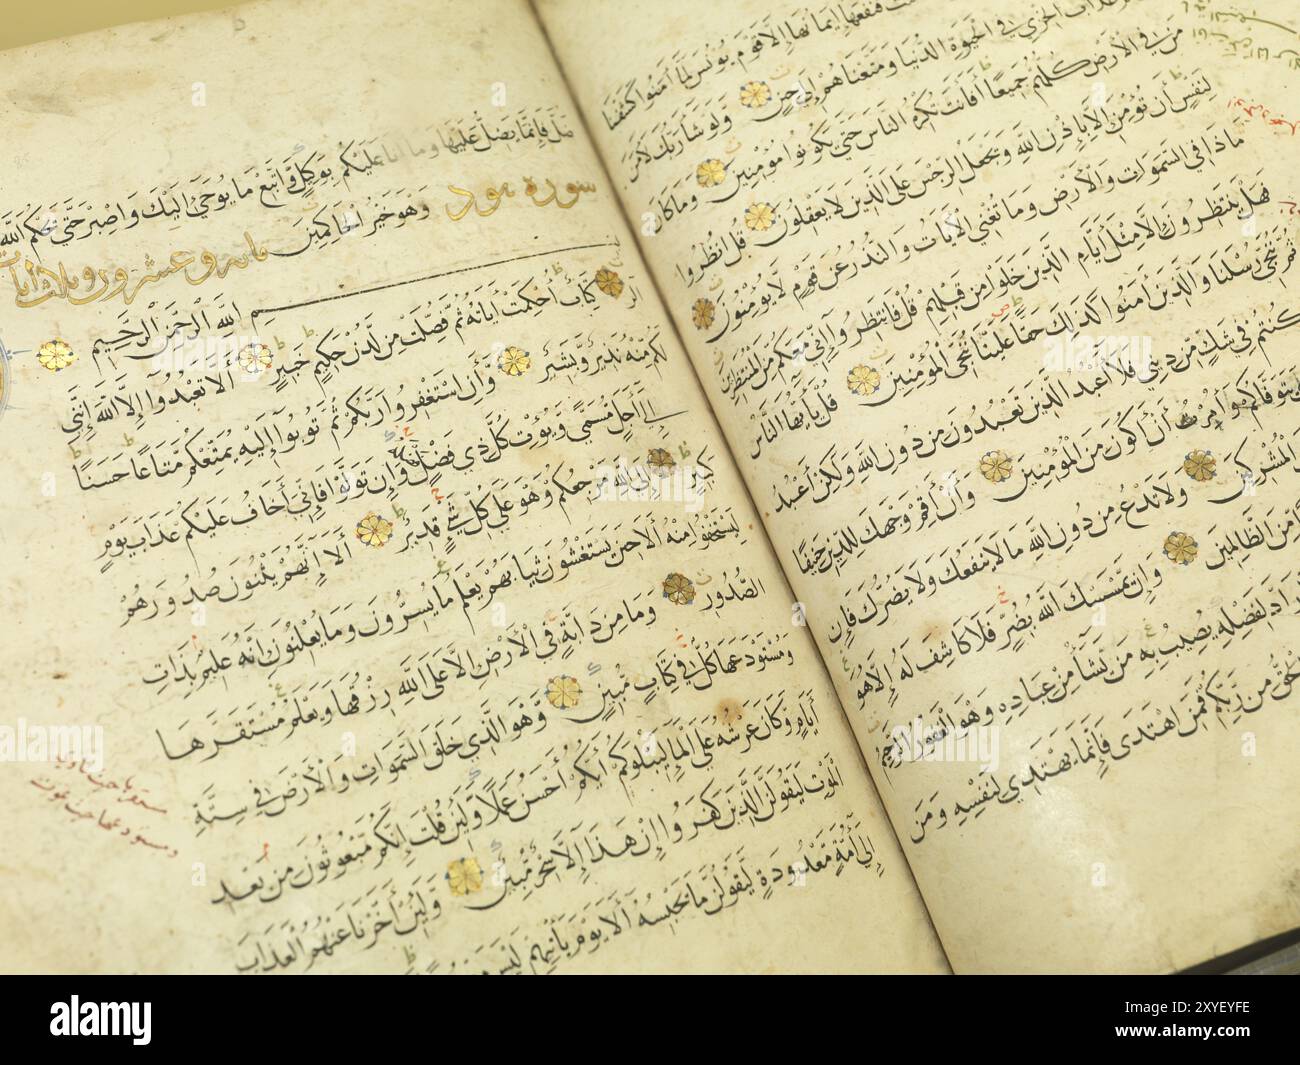 فنفعها إيمانها إلا قوم يونس لما آمنوا كشفنا
عذاب الخزي في الحيوة الدنيا ومتعناهم إلى حين ولو شا ربك لآمن
من في الأرض كلهم جميعا أفأنت تكره الناس حتى يكونوا مؤمنين وما كان
لنفس أن تؤمن إلا بإذن الله ويجعل الرجس على الذين لا يعقلون قل انظروا
ماذا في السموات والأرض وما تغني الآيات والنذر عن قوم لا يؤمنون
فهل ينتظرون إلا مثل أيام الذين خلوا من قبلهم قل فانتظروا إني معكم من المنتظرين
ثم ننجي رسلنا والذين آمنوا كذلك حقا علينا ننج المؤمنين قل يا أيها الناس
كنتم في شك من ديني فلا أعبد الذين تعبدون من دون الله ولكن أعبد
يتوفاكم وأمرت أن أكون من المؤمنين وأن أقم وجهك للدين حنيفا
المشركين ولا تدع من دون الله ما لا ينفعك ولا يضرك فإن
من الظالمين وإن يمسسك الله بضر فلا كاشف له إلا هو
راد لفضله يصيب به من يشاء من عباده وهو الغفور الرحيم
الحق من ربكم فمن اهتدى فإنما يهتدي لنفسه ومن
ضل فإنما يضل عليها وما أنا عليكم بوكيل واتبع ما يوحى إليك واصبر حتى يحكم الله
سورة هود وهو خير الحاكمين مايه وعشرون وثلاث آيات
بسم الله الرحمن الرحيم
الر كتاب أحكمت آياته ثم فصلت من لدن حكيم خبير ألا تعبدوا إلا الله إنني
لكم منه نذير وبشير وأن استغفروا ربكم ثم توبوا إليه يمتعكم متاعا حسنا
إلى أجل مسمى ويؤت كل ذي فضل فضله وإن تولوا فإني أخاف عليكم عذاب يوم
كبير إلى الله مرجعكم وهو على كل شيء قدير ألا إنهم يثنون صدورهم
ليستخفوا منه ألا حين يستغشون ثيابهم يعلم ما يسرون وما يعلنون إنه عليم بذات
الصدور وما من دابة في الأرض إلا على الله رزقها ويعلم مستقرها
ومستودعها كل في كتاب مبين وهو الذي خلق السموات والأرض في ستة
أيام وكان عرشه على الما ليبلوكم أيكم أحسن عملا ولئن قلت إنكم مبعوثون من بعد
الموت ليقولن الذين كفروا إن هذا إلا سحر مبين ولئن أخرنا عنهم العذاب
إلى أمة معدودة ليقولن ما يحبسه ألا يوم يأتيهم ليس
alamy
Image ID: 2XYEYFE
www.alamy.com